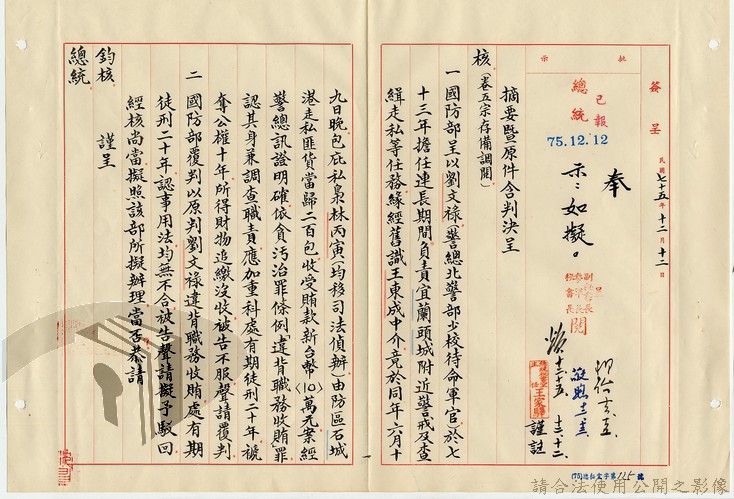 簽呈
民國七十五年十二月十二日
批示
總統
已報
75.12.12
奉
示：如擬。
閱
謹註
摘要暨原件含判決呈
核（卷五宗存備調閱）
一國防部呈以劉文祿（警總北警部少校待命軍官）於七
十三年擔任連長期間負責宜蘭頭城附近警戒及查
緝走私等任務緣經舊識王東成中介竟於同年六月十
九日晚包庇私梟林丙寅（均移司法偵辦）由防區石城
港走私匪貨當歸二百包收受賄款新台幣（10）萬元案經
警總訊證明確依貪污治罪條例「違背職務收賄」罪
認其身兼調查職責應加重科處有期徒刑二十年褫
奪公權十年所得財物追繳沒收被告不服聲請覆判
二國防部覆判以原判劉文祿違背職務收賄處有期
徒刑二十年認事用法均無不合被告聲請擬予駁回
經核尚當擬照該部所擬辦理當否恭請
鈞核
謹呈
總統
請合法使用公開之影像